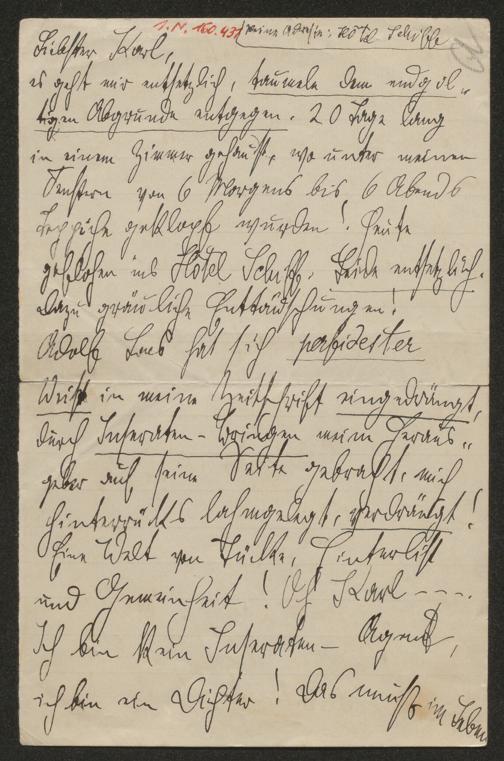 I.N. 160.431 (Meine Adresse: Hôtel Schiff)
Liebster Karl,
es geht mir entsetzlich, taumele dem endgül-
tigen Abgrunde entgegen. 20 Tage lang
in einem Zimmer gehaust, wo unter meinen
Fenstern von 6 Morgens bis 6 Abends
Teppiche geklopft wurden! Heute
geflohen ins Hôtel Schiff. Leide entsetzlich.
Dazu gräuliche Enttäuschungen!
Adolf Loos hat sich perfidester
Weise in meine Zeitschrift eingedrängt,
durch Inseraten-Bringen meinen Heraus-
geber auf seine Seite gebracht, mich
hinterrücks lahmgelegt, verdrängt!
Eine Welt von Tücke, Hinterlist
und Gemeinheit! Oh Karl ----.
Ich bin kein Inseraten-Agent,
ich bin ein Dichter! Das muß im Leben